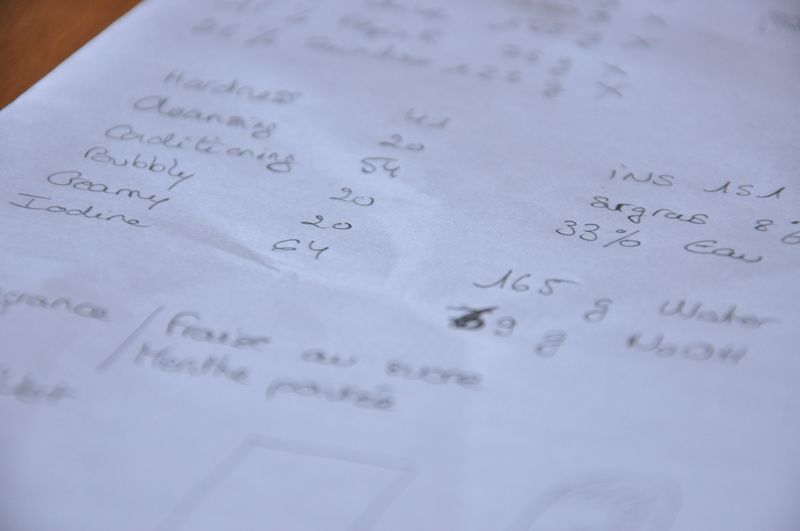 26%
125 g X
Hardness 41
Cleansing 20
Conditioning 54
Bubbly 20
Creamy 20
Iodine 64
INS 151
surgras 8%
33% Eau
165 g Water
69 g NaOH
Fraise au sucre
Menthe poivrée